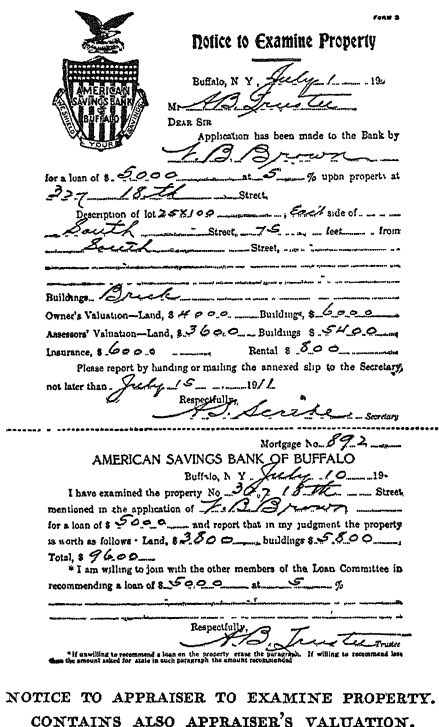 FORM 3
Notice to Examine Property
AMERICAN
SAVINGS BANK
OF
BUFFALO
YOUR
Buffalo, N Y, July 1 190
Mr A B Trustee
DEAR SIR
Application has been made to the Bank by
F. B. Brown
for a loan of $ 5000 at 5 % upon property at
327 18th Street,
Description of lot 25X100, East side of
South Street, 75 feet from
South Street,
Buildings Brick
Owner's Valuation—Land, $ 4000. Buildings, $ 6000
Assessors' Valuation—Land, $ 3600 Buildings $ 5400
Insurance, $ 6000 Rental $ 800
Please report by handing or mailing the annexed slip to the Secretary,
not later than July 15 1911
Respectfully,
Secretary
Mortgage No. 892
AMERICAN SAVINGS BANK OF BUFFALO
Buffalo, N Y July 10 19
I have examined the property No 18th Street
mentioned in the application of F B Brown
for a loan of $ 5000 and report that in my judgment the property
is worth as follows · Land, $ 3800 buildings $ 5800
Total, $ 9600
* I am willing to join with the other members of the Loan Committee in
recommending a loan of $ 5000 at 5 %
Respectfully,
A B Trustee Trustee
* If unwilling to recommend a loan on the property erase the paragraph. If willing to recommend less
than the amount asked for state in such paragraph the amount recommended
NOTICE TO APPRAISER TO EXAMINE PROPERTY.
CONTAINS ALSO APPRAISER'S VALUATION.